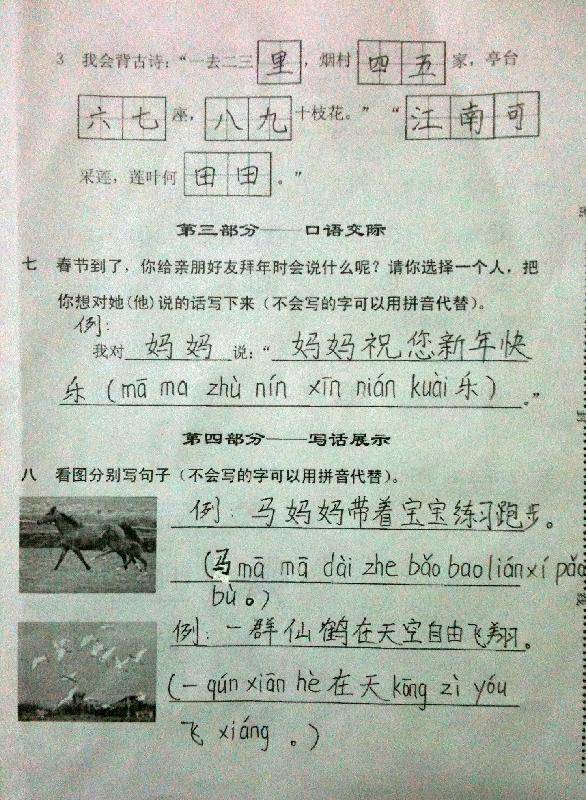 3 我会背古诗：“一去二三里，烟村四五家，亭台
六七座，八九十枝花。” “江南可
采莲，莲叶何田田。”
第三部分——口语交际
七 春节到了，你给亲朋好友拜年时会说什么呢？请你选择一个人，把
你想对她(他)说的话写下来（不会写的字可以用拼音代替）。
例：
我对妈妈说：“妈妈祝您新年快
乐（mā ma zhù nín xīn nián kuài 乐）。”
第四部分——写话展示
八 看图分别写句子（不会写的字可以用拼音代替）。
例：马妈妈带着宝宝练习跑步。
（马mā mā dài zhe bǎo bao lián xí pǎo
bù。）
例：一群仙鹤在天空自由飞翔。
（一qún xiān hè 在天 kōng zì yóu
飞 xiáng 。）